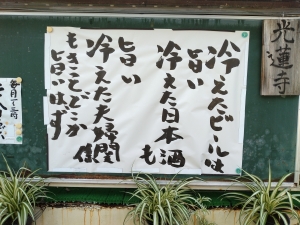 光蓮寺
冷えたビールは
旨い
冷えた日本酒も
旨い
冷えた夫婦関係
もきっとどこか
旨いはず